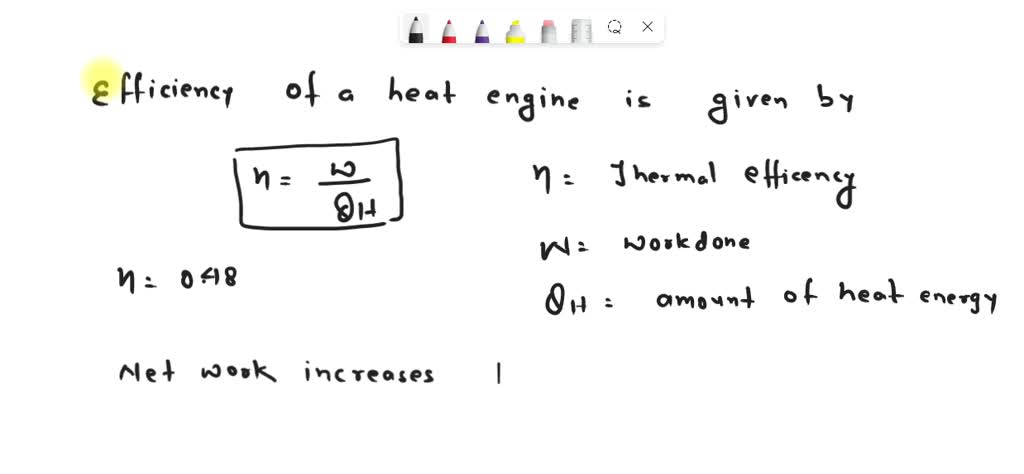 Efficiency of a heat engine is given by
η = W / QH
η = Thermal efficency
W = workdone
QH = amount of heat energy
η = 0.48
Net work increases